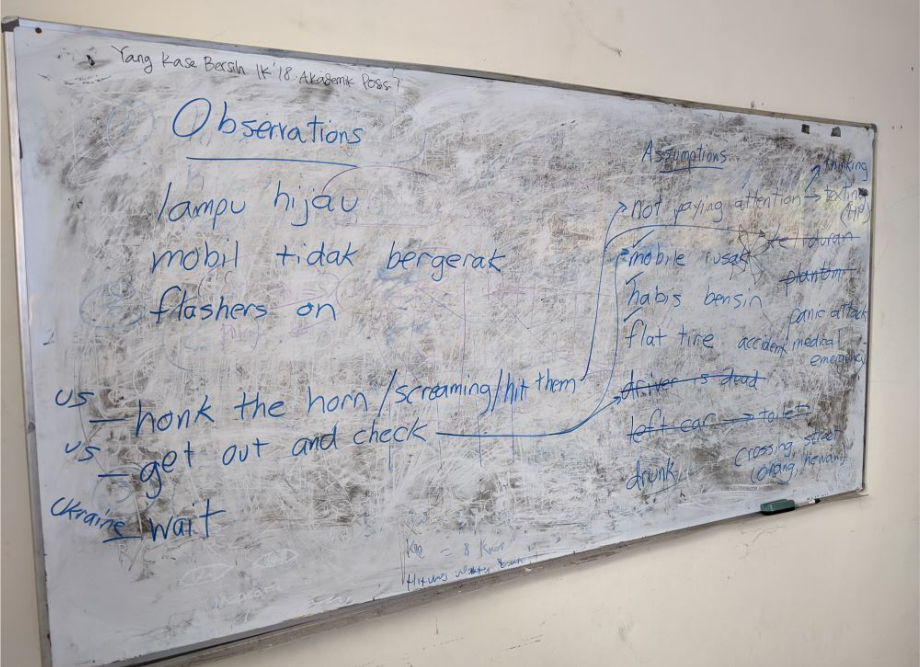 Yang Kase Bersih IK'18. Akademik Poss!
Observations
lampu hijau
mobil tidak bergerak
flashers on
US – honk the horn/screaming/hit them
US – get out and check
Ukraine – wait
Assumptions
thinking
not paying attention → texting
(HP)
ketiduran
mobile rusak
habis bensin
panic attack
flat tire accident medical
emergency
driver is dead
left car → toilet
drunk
crossing street
= 8